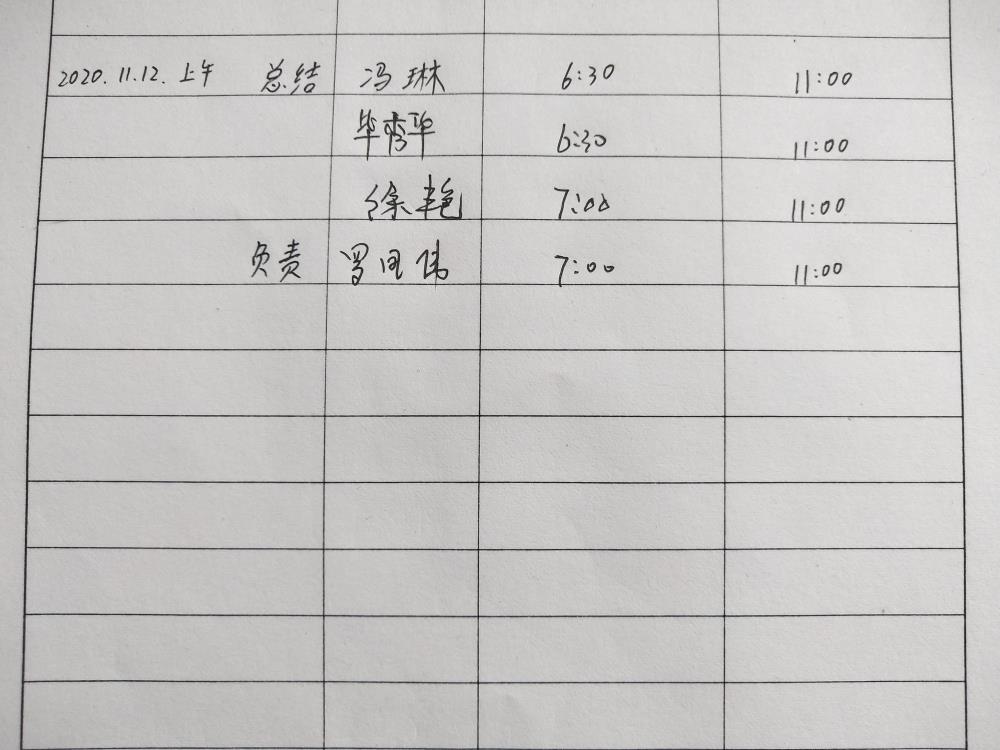 2020.11.12. 上午 总结 冯琳 6:30 11:00
毕秀华 6:30 11:00
徐艳 7:00 11:00
负责 罗国伟 7:00 11:00